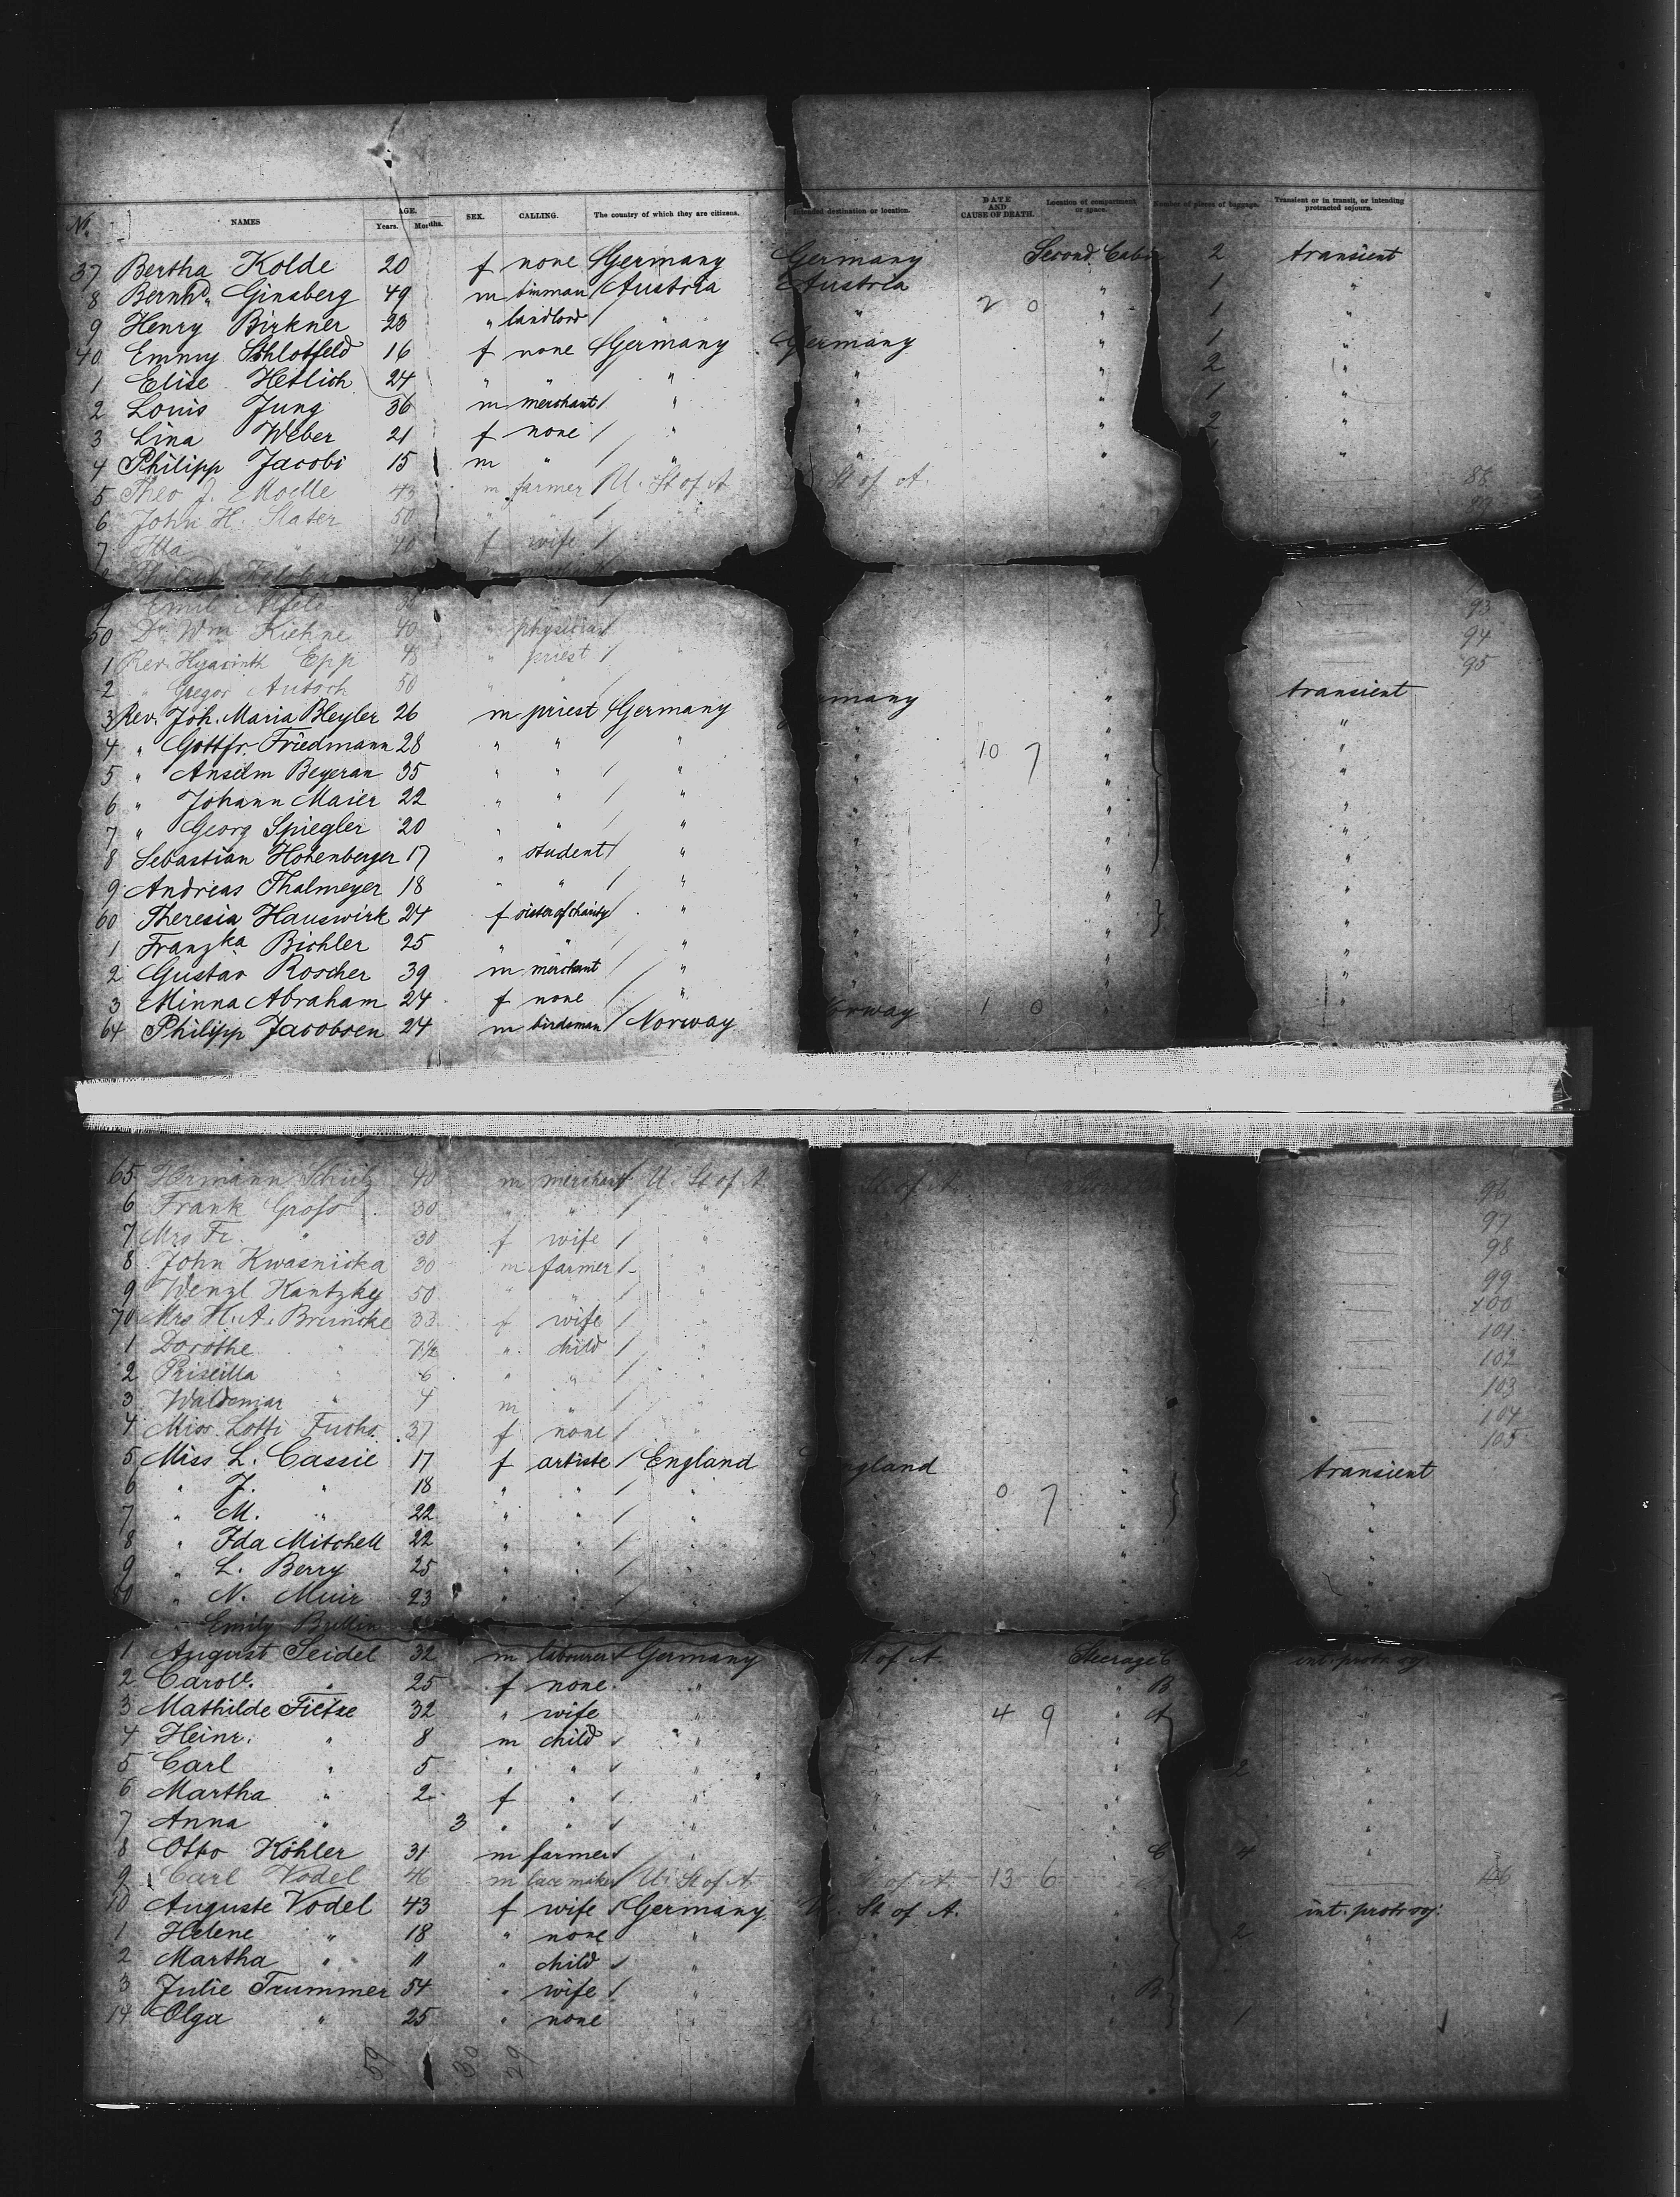 No. NAMES AGE. Years. Months. SEX. CALLING. The country of which they are citizens. Intended destination or location. DATE AND CAUSE OF DEATH. Location of compartment or space. Number of pieces of baggage. Transient or in transit, or intending protracted sojourn.
37 Bertha Kolde 20 f none Germany Germany Second Cabin 2 transient
8 Bernhd. Ginsberg 49 m tinman Austria Austria " 1 "
9 Henry Birkner 23 " landlord " " 2 0 " 1 "
40 Emmy Schlotfeld 16 f none Germany Germany " 1 "
1 Elise Hetlich 24 " " " " " 2 "
2 Louis Jung 36 m merchant " " " 1 "
3 Lina Weber 21 f none " " " 2 "
4 Philipp Jacobi 15 m " " " " "
5 Theo J. Moelle 43 m farmer U. St of A St of A. 88
6 John H. Slater 50 " "
7 " 40 f wife
9 Emil Alfeld 93
50 Dr. Wm Kiehne 40 " physician 94
1 Rev. Hyacinth Epp 48 " priest 95
2 " Gregor 50 "
3 Rev. Joh. Maria Heyler 26 m priest Germany many " transient
4 " Gottfr. Friedmann 28 " " " " 10 7 " "
5 " Anselm Begeran 35 " " " " " "
6 " Johann Maier 22 " " " " " "
7 " Georg Spiegler 20 " " " " " "
8 Sebastian Hohenberger 17 " student " " " "
9 Andreas Thalmeyer 18 " " " " " "
60 Theresia Hauswirk 24 f sister of charity " " " "
1 Franzka Bichler 25 " " " " " "
2 Gustav Roscher 39 m merchant " " " "
3 Minna Abraham 24 f none " " " "
64 Philipp Jacobsen 24 m birdsman Norway orway 1 0 " "
65 Hermann Schulz 40 m merchant U. St of A St of A 96
6 Frank Gross 30 " " " 97
7 Mrs Fr. " 30 f wife " 98
8 John Kwasnicka 30 m farmer " 99
9 Wenzl Kantzky 50 " " " 100
70 Mrs H. A. Bruncke 33 f wife " 101
1 Dorothe " 7½ " child " 102
2 Priscilla " 6 " " " 103
3 Waldemar " 4 m " " 104
4 Miss Lotti Fuchs 37 f none " 105
5 Miss L. Cassie 17 f artiste England ngland transient
6 " J. " 18 " " " " 0 7 " "
7 " M. " 22 " " " " " "
8 " Ida Mitchell 22 " " " " " "
9 " L. Berry 25 " " " " " "
" N. Muir 23 " " "
Emily
1 August Seidel 32 m labourer Germany St of A Steerage int. protr. soj.
2 Carol. " 25 f none " " " B "
3 Mathilde Fietze 32 " wife " " 4 9 " A "
4 Heinr. " 8 m child " " " "
5 Carl " 5 " " " " " 2 "
6 Martha " 2 f " " " " "
7 Anna " 3 " " " " " "
8 Otto Köhler 31 m farmer " " " C 4 "
9 Carl Vodel 46 m lace maker U. St of A St of A 13 6 " 106
10 Auguste Vodel 43 f wife Germany U. St of A. " int. protr. soj.
1 Helene " 18 " none " " " 2 "
2 Martha " 11 " child " " " "
3 Julie Trummer 54 " wife " " " B "
14 Olga " 25 " none " " " 1 "
59 30 29